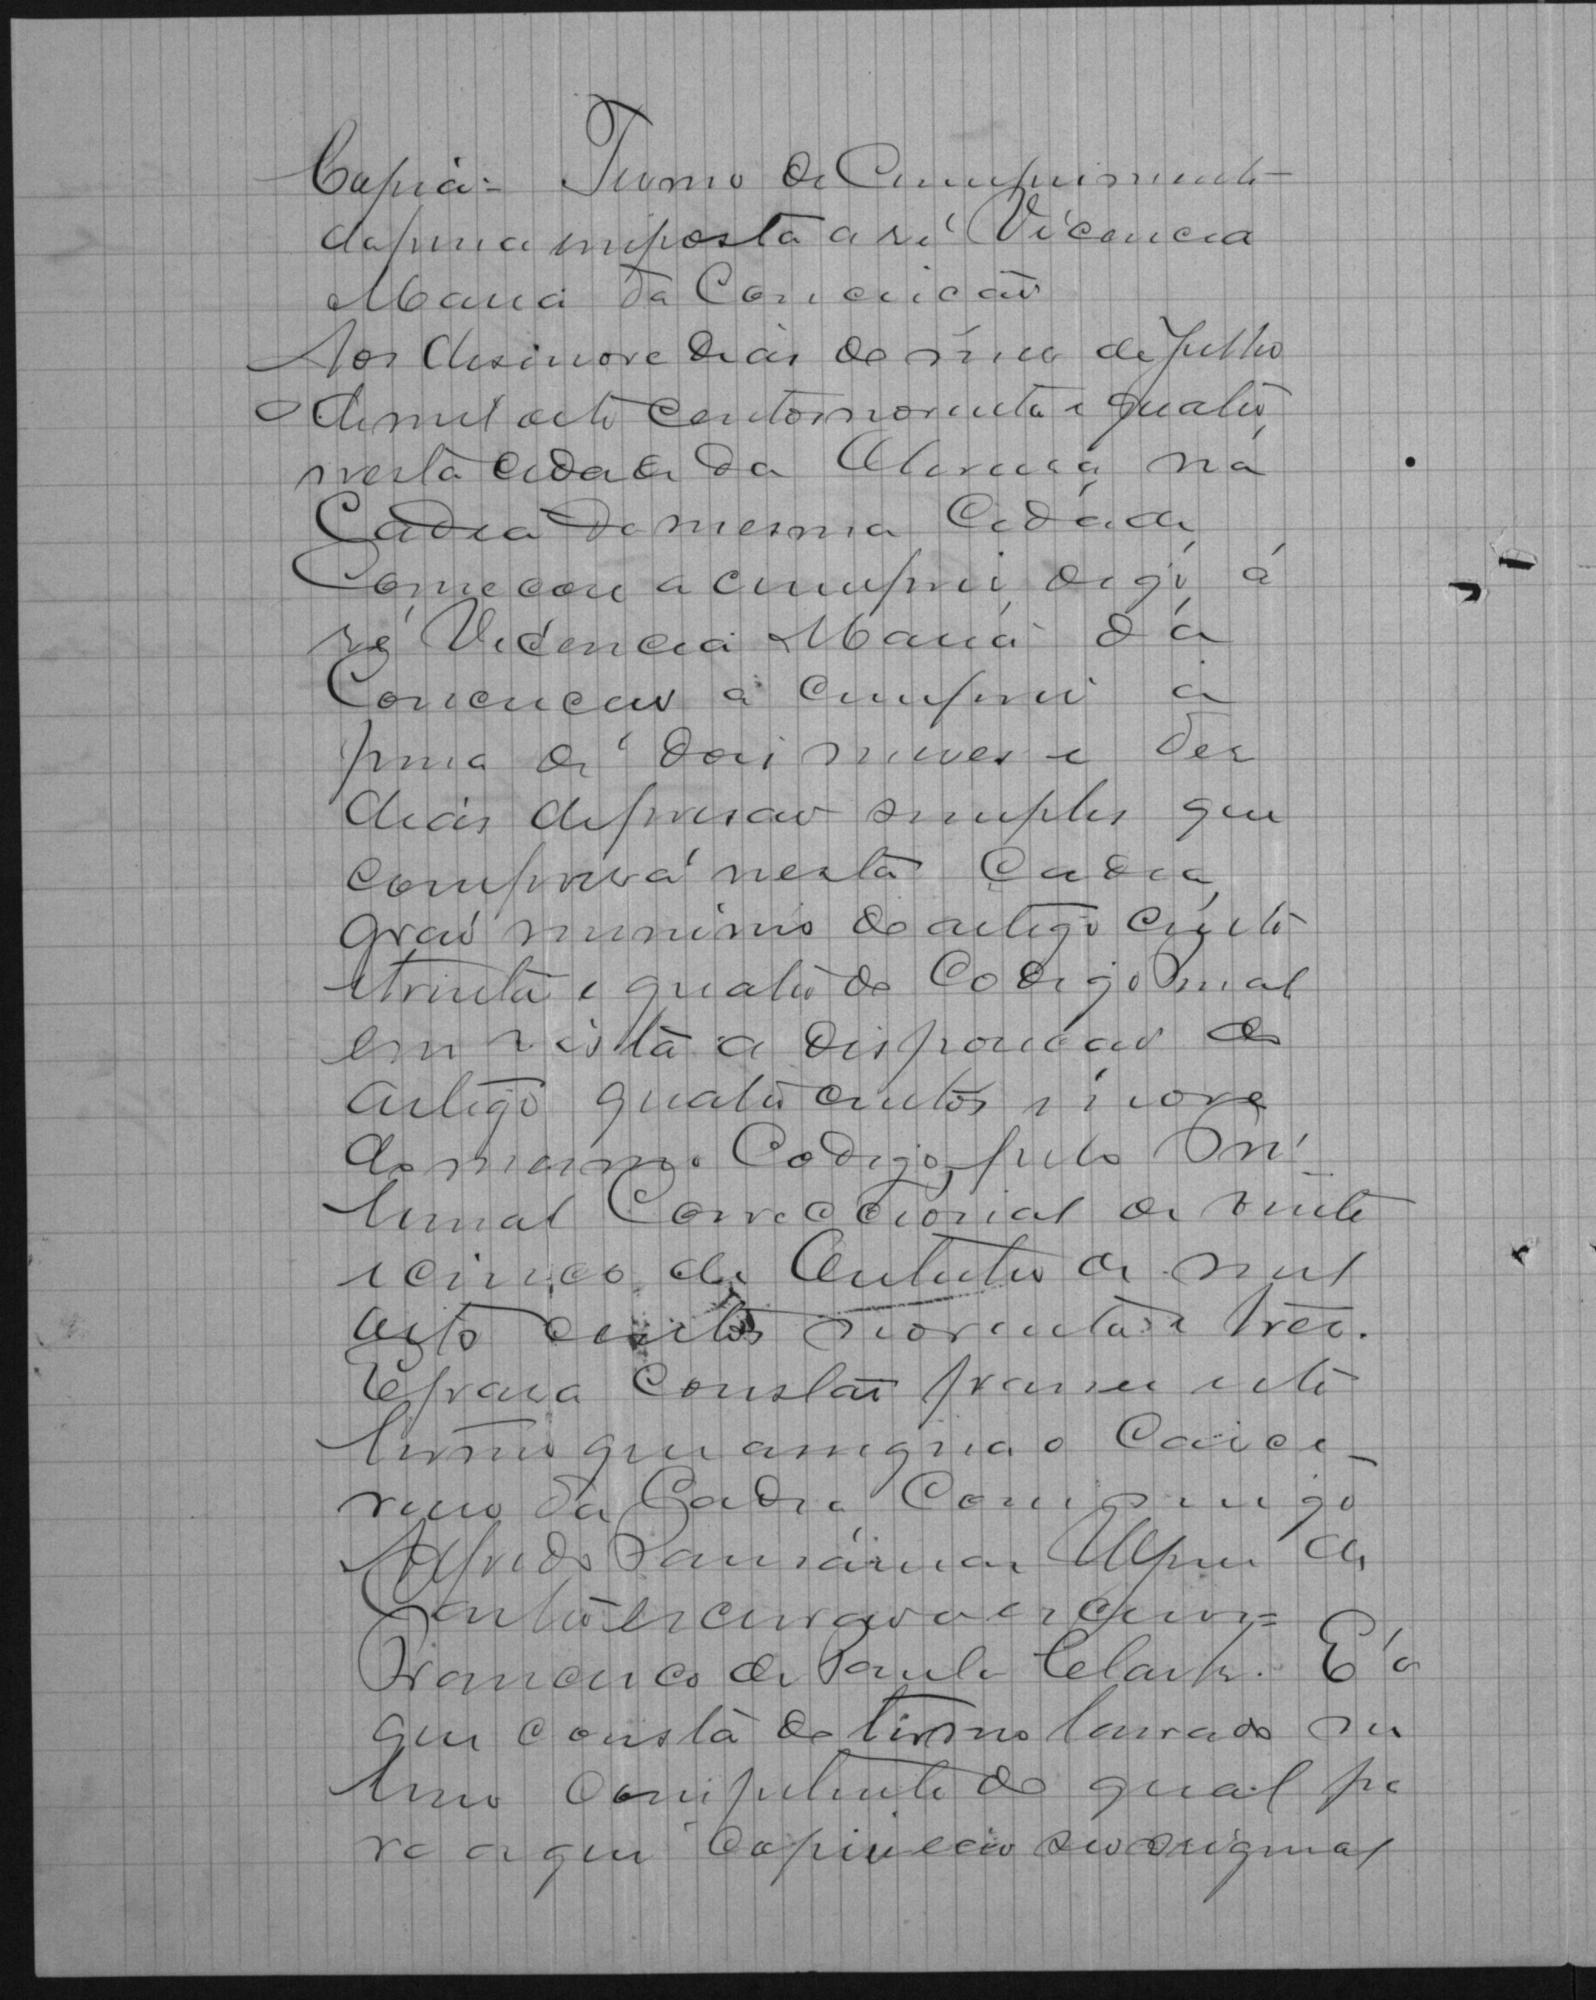 Copia = Termo de Cumprimento
da pena imposta a ré Vicencia
Maria da Conceicão
Aos desinove dias do mez de Julho
de mil oito centos noventa e quatro,
nesta cidade da na
Cadea da mesma Cidade,
Começou a cumprir, digo, a
ré Vicencia Maria da
Conceicão a cumprir a
pena de dois mezes e dez
dias de prisão simples que
comprirá nesta Cadea,
gráo minimo do artigo cento
e trinta e quatro do Codigo Penal
em vista a disposicão do
artigo quatro centos e nove
do mesmo Codigo, pelo Tri-
bunal Correccional de vinte
e cinco de Outubro de mil
oito centos noventa e trez.
E para constar passei este
termo que assigna o Carce-
reiro da Cadea Commigo
Alfredo de
Castro escrivão o escrevi =
Francisco de Paula . E' o
que consta do termo lavrado no
livro competente do qual pa
ra aqui copiei e ao seo original